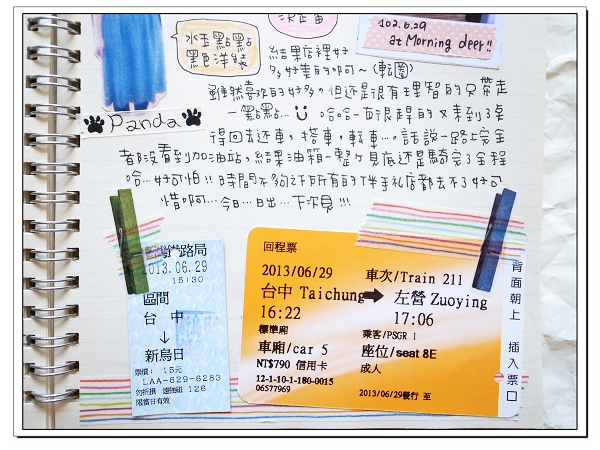 次企由
水玉點點
黑色洋裝
102.6.29
at Morning deer!!
結果店裡好
多好美的呀~(転圈)
雖然喜歡的好多,但還是很有理智的只帶走
一點點… 哈哈一面很趕的又来到了桌
得回去还車,搭車,転車…。話說一路上完全
都沒看到加油站,結果油箱一整ケ見底还是騎完了全程
哈…好可怕!!時間不夠之下所有的伴手礼店都去不了好可
惜啊…今日一日出…下次見!!!
Panda
台灣鐵路局
2013.06.29
15:30
區間
台 中
↓
新烏日
票價: 15元
LAA-629-6283
126
限當日有效
回程票
2013/06/29
車次/Train 211
台中 Taichung
左營 Zuoying
16:22
17:06
標準廂
乘客/PSGR 1
車廂/car 5
座位/seat 8E
NT$790 信用卡
成人
12-1-10-1-180-0015
06577969
2013/06/29發行 至
背面朝上 插入票口